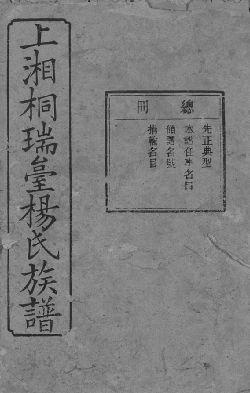 上湘桐瑞臺楊氏族譜
總冊
先正典型
本譜任事名目
領譜名號
捐輸名目